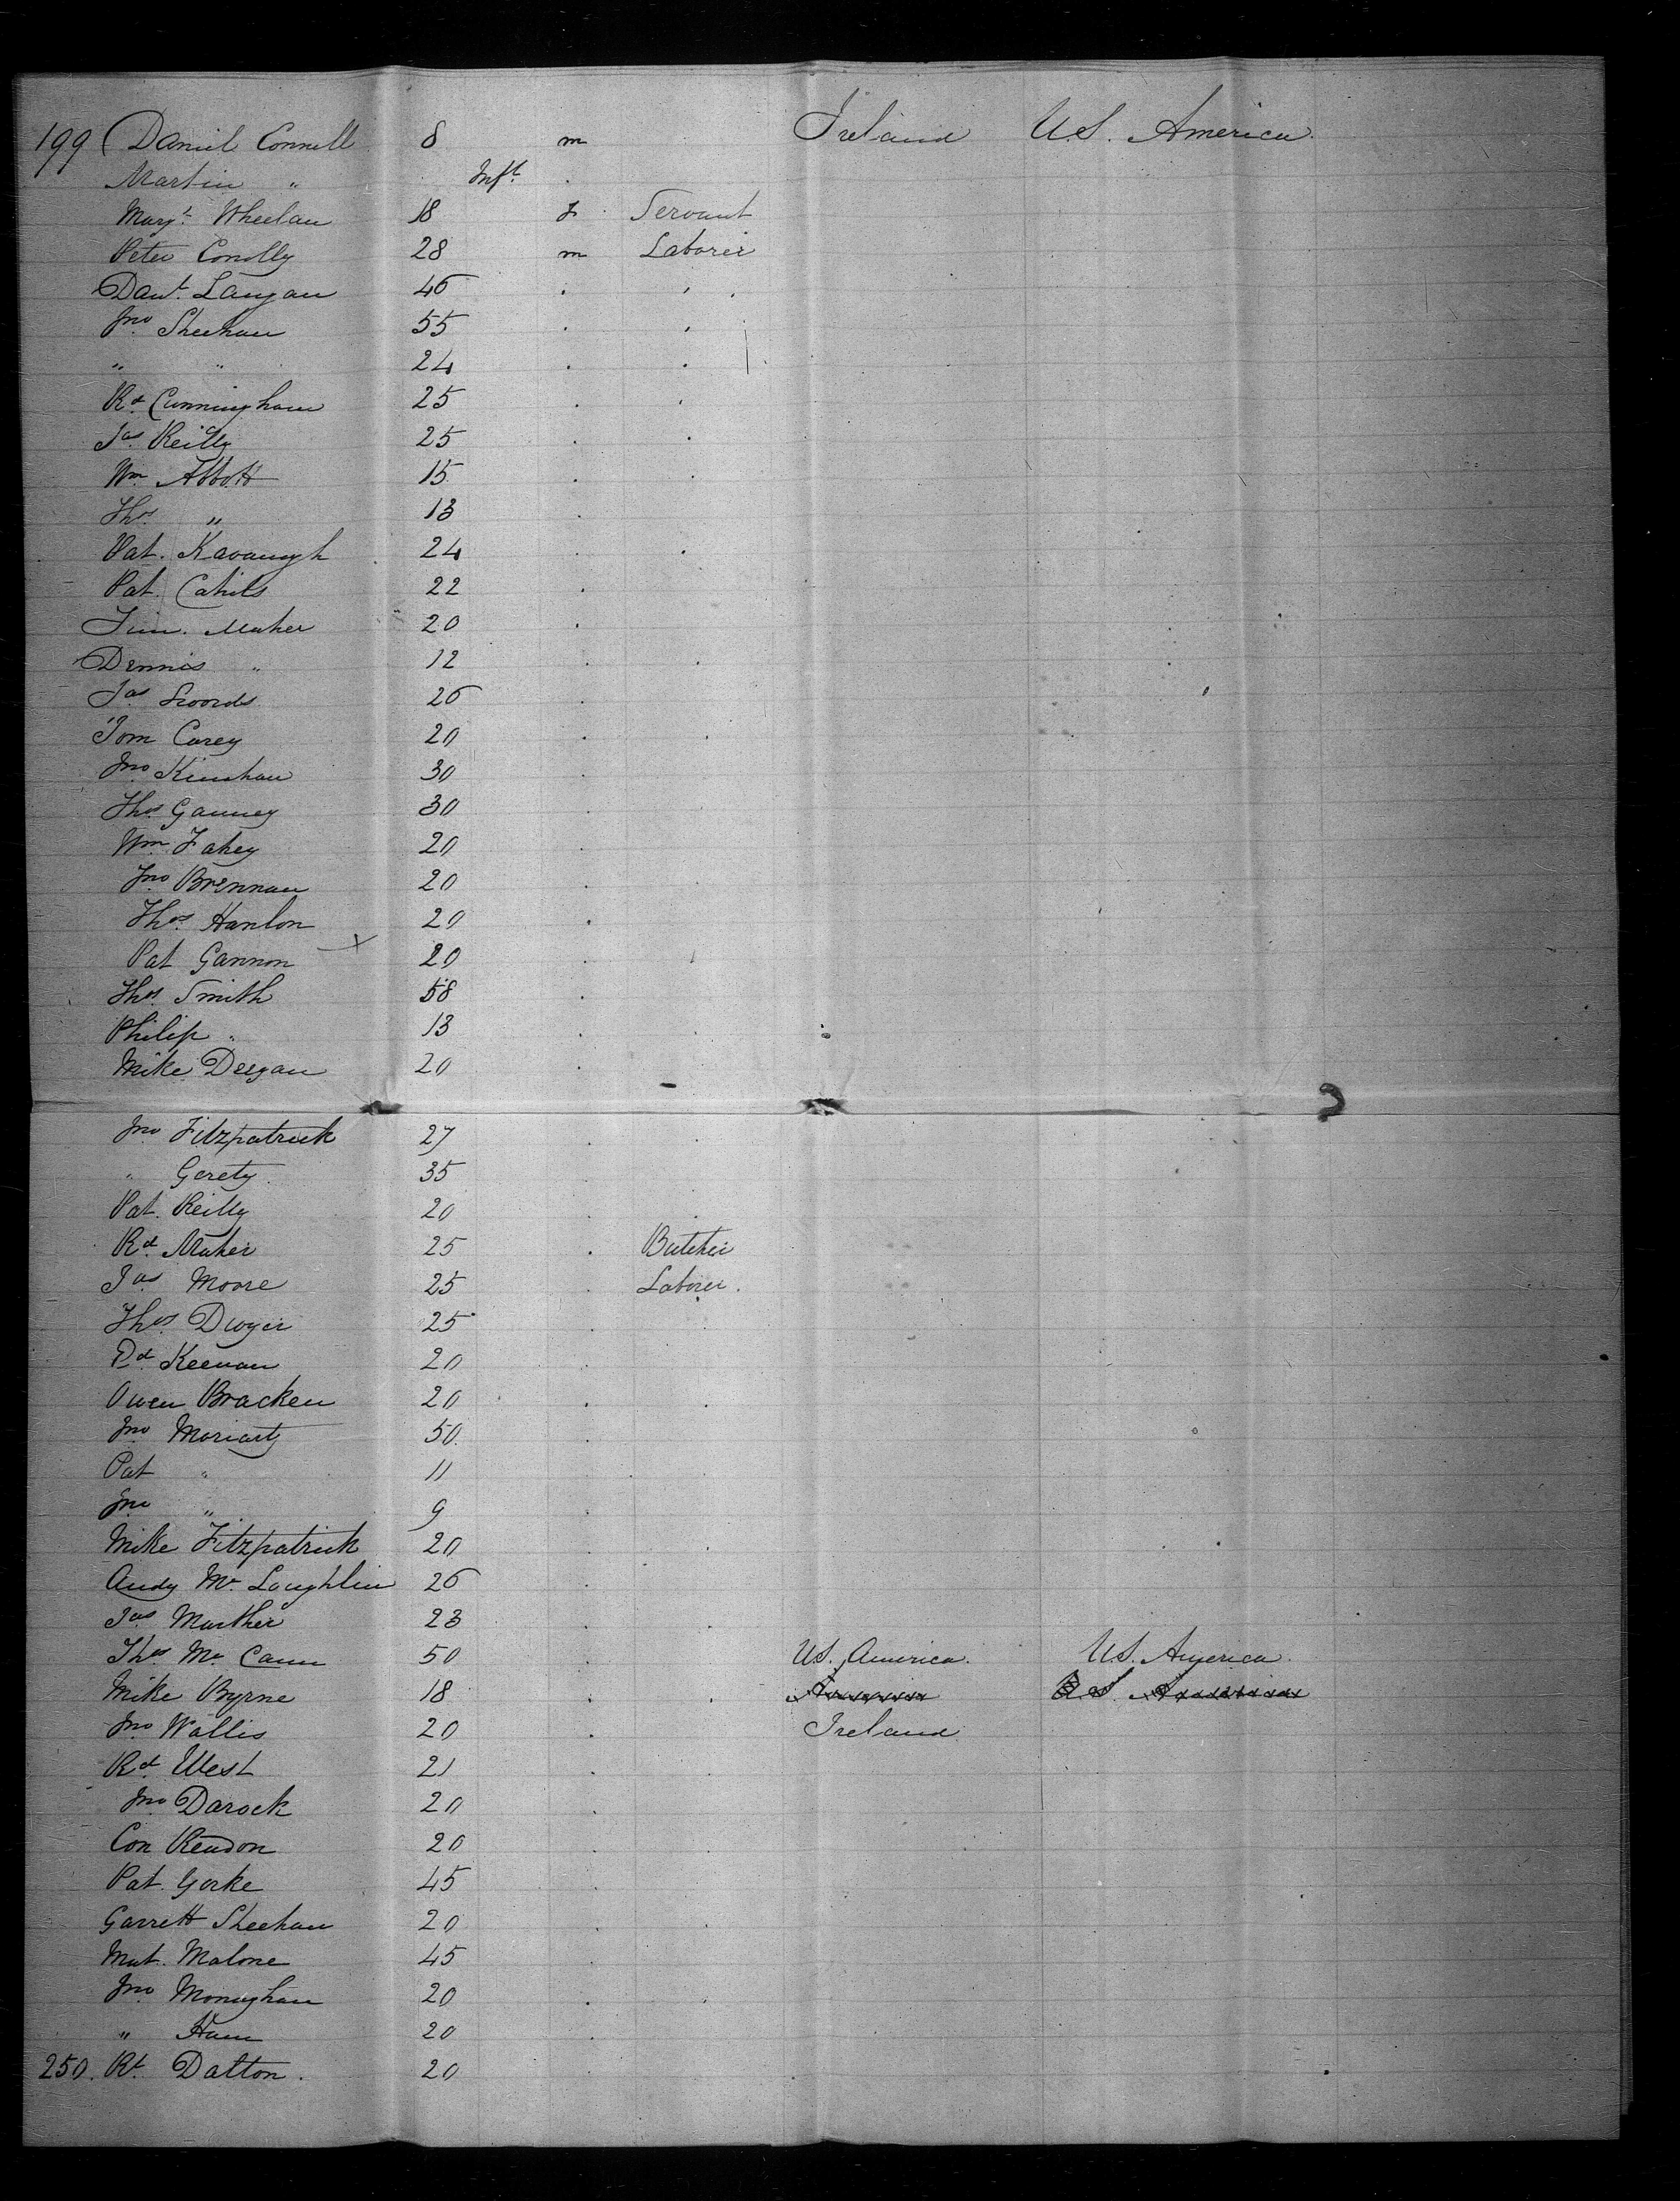 199 Daniel Connell 8 m Ireland U.S. America.
Martin " Inft.
Margt. Wheelan 18 f Servant
Peter Conolly 28 m Laborer
Danl. Langan 46
Jno Sheehan 55
" " 24
Rd. Cunningham 25
Jas Reilly 25
Wm Abbott 15
Thos. " 13
Pat. Kavanagh 24
Pat. Cahill 22
Tim. Maher 20
Dennis " 12
Jas Swords 26
Tom Carey 20
Jno Kinshan 30
Thos Ganney 30
Wm Fahey 20
Jno Brennan 20
Thos. Hanlon 20
Pat Gannon x 20
Thos. Smith 58
Philip " 13
Mike Deegan 20
Jno Fitzpatrick 27
" Gerety 35
Pat. Reilly 20
Rd. Maher 25 Butcher
Jas Moore 25 Laborer.
Thos. Dwyer 25
Pd. Keenan 20
Owen Bracken 20
Jno Moriarty 50
Pat " 11
Jno " 9
Mike Fitzpatrick 20
Andy Mc Loughlin 26
Jas Marther 23
Thos Mc Cann 50 U.S. America. U.S. America.
Mike Byrne 18
Jno Wallis 20 Ireland
Rd. West 21
Jno Darock 20
Con Reudon 20
Pat. Yorke 45
Garrett Sheehan 20
Mat. Malone 45
Jno Monaghan 20
" Ham 20
250. Rt. Dalton. 20